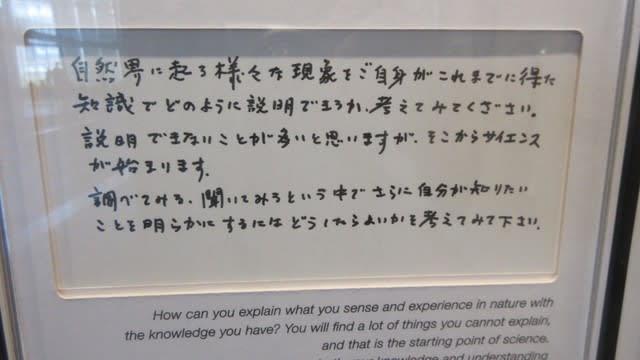 自然界に起る様々な現象をご自身がこれまでに得た
知識でどのように説明できるか、考えてみてください。
説明できないことが多いと思いますが、そこからサイエンス
が始まります。
調べてみる、聞いてみるという中でさらに自分が知りたい
ことを明らかにするにはどうしたらよいかを考えてみて下さい。
How can you explain what you sense and experience in nature with
the knowledge you have? You will find a lot of things you cannot explain,
and that is the starting point of science.
knowledge and understanding